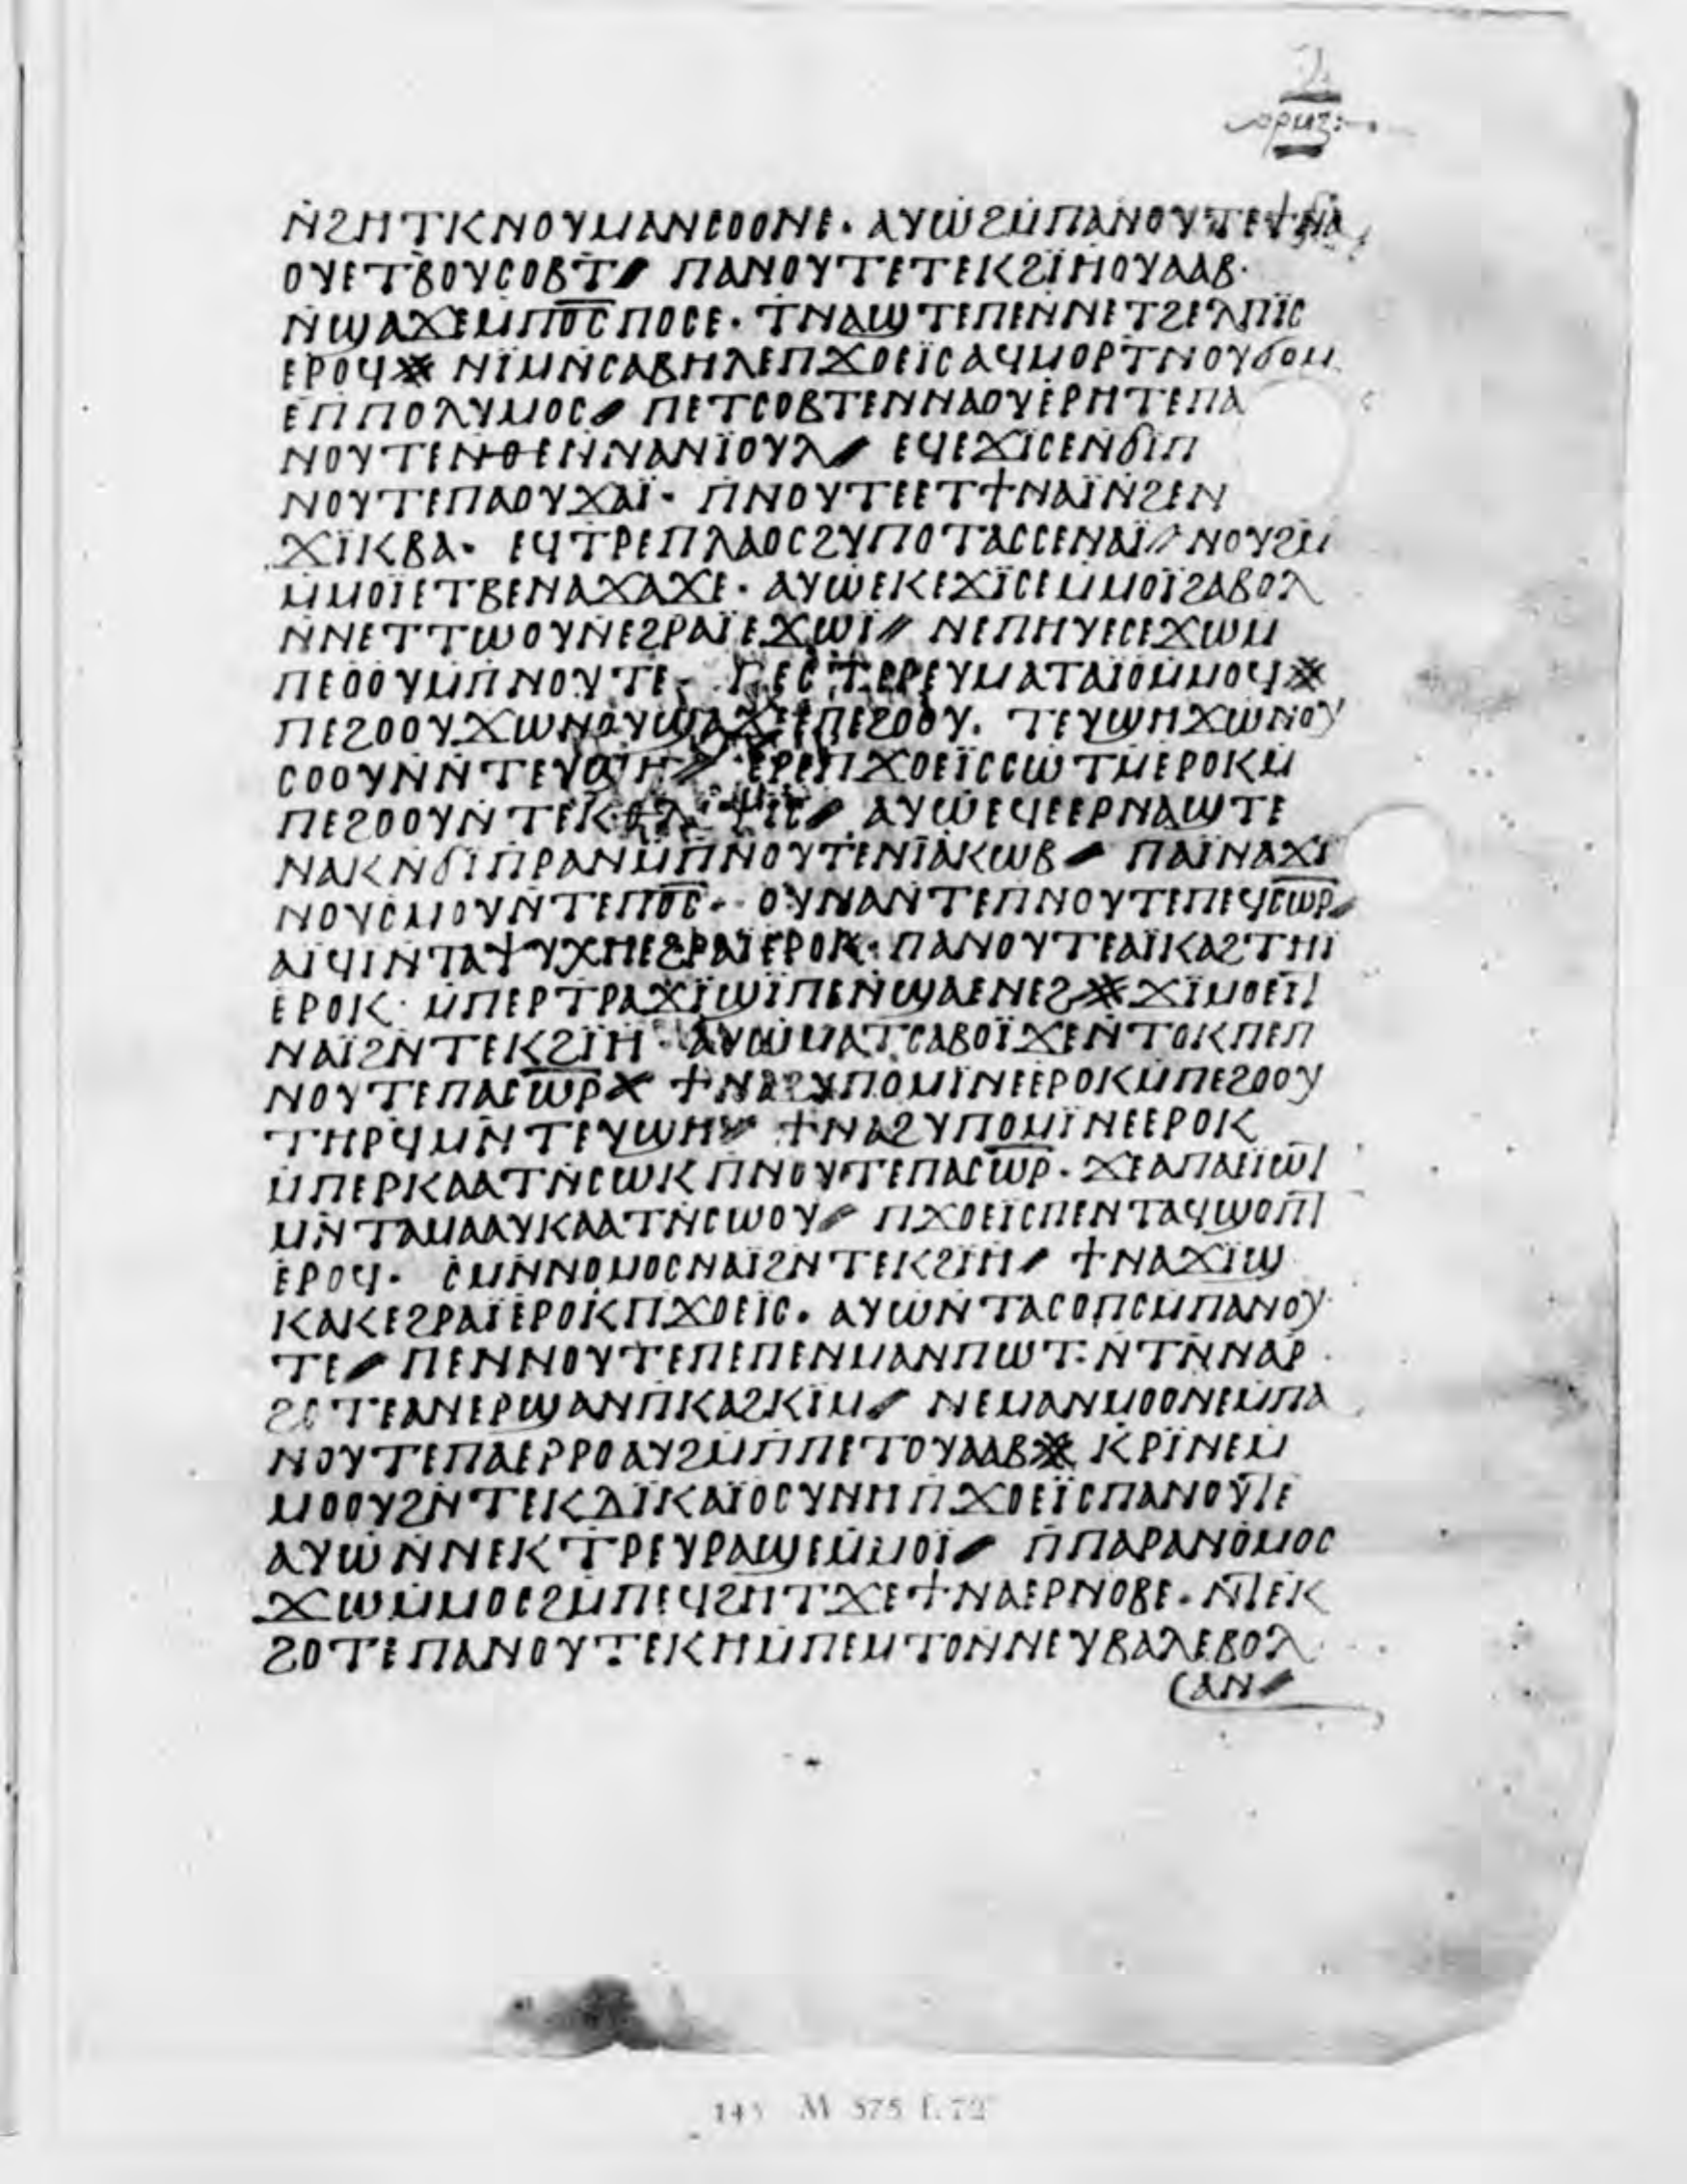 ⲣⲙⲍ
ⲛ̇ϩⲏⲧⲕⲛⲟⲩⲙⲁⲛⲉⲟⲟⲛⲉ· ⲁⲩⲱϩⲙ̇ⲡⲁⲛⲟⲩⲧⲉϯⲛⲁ
ⲟⲩⲉⲧⲃⲟⲩⲥⲟⲃⲧ⸗ ⲡⲁⲛⲟⲩⲧⲉⲧⲉⲕϩⲓ̈ⲏⲟⲩⲁⲁⲃ·
ⲛ̇ϣⲁϫⲉⲙⲡⲟ̅ⲥ̅ⲡⲟⲥⲉ· ϯⲛⲁϣⲧⲉⲡⲉⲛ̇ⲛⲉⲧϩⲉⲗⲡⲓ̈ⲥ
ⲉⲣⲟϥ※ ⲛⲓ̈ⲙⲛ̇ⲥⲁⲃⲏⲗⲉⲡϫⲟⲉⲓ̈ⲥⲁϥⲙⲟⲣⲧⲛⲟⲩϭⲟⲙ
ⲉⲡⲡⲟⲗⲩⲙⲟⲥ⸗ ⲡⲉⲧⲥⲟⲃⲧⲉⲛⲛⲁⲟⲩⲉⲣⲏⲧⲉⲡⲁ
ⲛⲟⲩⲧⲉⲛⲑⲉⲛ̇ⲛⲁⲛⲓ̈ⲟⲩⲗ⸗ ⲉϥⲉϫⲓ̈ⲥⲉⲛ̇ϭⲓⲡ
ⲛⲟⲩⲧⲉⲡⲁⲟⲩϫⲁⲓ̈· ⲡ̇ⲛⲟⲩⲧⲉⲉⲧϯⲛⲁⲓ̈ⲛ̇ϩⲉⲛ
ϫⲓ̈ⲕⲃⲁ· ⲉϥⲧⲣⲉⲡⲗⲁⲟⲥϩⲩⲡⲟⲧⲁⲥⲥⲉⲛⲁⲓ̈⸗ⲛⲟⲩϩⲙ̇
ⲙ̇ⲙⲟⲓ̈ⲉⲧⲃⲉⲛⲁϫⲁϫⲉ· ⲁⲩⲱⲉⲕⲉϫⲓ̈ⲥⲉⲙ̇ⲙⲟⲓ̈ϩⲁⲃⲟⲗ
ⲛ̇ⲛⲉⲧⲧⲱⲟⲩⲛ̇ⲉϩⲣⲁⲓ̈ⲉϫⲱⲓ̈⸗ ⲛⲉⲡⲏⲩⲉⲥⲉϫⲱⲙ
ⲡⲉⲟⲟⲩⲙ̇ⲡ̇ⲛⲟⲩⲧⲉ· ⲡⲉⲥⲧⲉⲣⲉⲩⲙⲁⲧⲁⲓ̈ⲟⲙ̇ⲙⲟϥ※
ⲡⲉϩⲟⲟⲩϫⲱⲛⲟⲩϣⲁϫⲉⲉⲡⲉϩⲟⲟⲩ· ⲧⲉⲩϣⲏϫⲱⲛⲟⲩ
ⲥⲟⲟⲩⲛⲛ̇ⲧⲉⲩϣⲏ⸗ ⲉⲣⲉⲡϫⲟⲉⲓ̈ⲥⲥⲱⲧⲙ̇ⲉⲣⲟⲕⲙ̇
ⲡⲉϩⲟⲟⲩⲛ̇ⲧⲉⲕⲑⲗⲓⲯⲓⲥ⸗ ⲁⲩⲱⲉϥⲉⲉⲣⲛⲁϣⲧⲉ
ⲛⲁⲕⲛ̇ϭⲓⲡ̇ⲣⲁⲛⲙ̇ⲡⲛⲟⲩⲧⲉⲛⲓ̈ⲁⲕⲱⲃ⸗ ⲡⲁⲓ̈ⲛⲁϫⲓ̈
ⲛⲟⲩⲥⲙⲟⲩⲛ̇ⲧⲉⲡⲟ̅ⲥ̅· ⲟⲩⲛⲁⲛ̇ⲧⲉⲡⲛⲟⲩⲧⲉⲡⲉϥⲥ̅ⲱ̅ⲣ̅⸗
ⲁⲓ̈ϥⲓⲛ̇ⲧⲁⲯⲩⲭⲏⲉϩⲣⲁⲓ̈ⲉⲣⲟⲕ· ⲡⲁⲛⲟⲩⲧⲉⲁⲓ̈ⲕⲁϩⲧⲏⲓ̈
ⲉⲣⲟⲕ· ⲙ̇ⲡⲉⲣⲧⲣⲁϫⲓ̈ϣⲓ̈ⲡⲉⲛ̇ϣⲁⲉⲛⲉϩ※ϫⲓ̈ⲙⲟⲉⲓ̈ⲧ
ⲛⲁⲓ̈ϩⲛ̇ⲧⲉⲕϩⲓ̈ⲏ· ⲁⲩⲱⲙⲁⲧⲥⲁⲃⲟⲓ̈ϫⲉⲛ̇ⲧⲟⲕⲡⲉⲡ
ⲛⲟⲩⲧⲉⲡⲁⲥ̅ⲱ̅ⲣ̅※ ϯⲛⲁϩⲩⲡⲟⲙⲓ̈ⲛⲉⲉⲣⲟⲕⲙ̇ⲡⲉϩⲟⲟⲩ
ⲧⲏⲣϥⲙⲛ̇ⲧⲉⲩϣⲏ⸗ ϯⲛⲁϩⲩⲡⲟⲙⲓ̈ⲛⲉⲉⲣⲟⲕ
ⲙ̇ⲡⲉⲣⲕⲁⲁⲧⲛ̇ⲥⲱⲕⲡ̇ⲛⲟⲩⲧⲉⲡⲁⲥ̅ⲱ̅ⲣ̅· ϫⲉⲁⲡⲁⲉⲓⲱⲧ
ⲙⲛ̇ⲧⲁⲙⲁⲁⲩⲕⲁⲁⲧⲛ̇ⲥⲱⲟⲩ⸗ ⲡϫⲟⲉⲓ̈ⲥⲡⲉⲛⲧⲁϥϣⲟⲡⲧ
ⲉⲣⲟϥ· ⲥⲙⲛ̇ⲛⲟⲙⲟⲥⲛⲁⲓ̈ϩⲛ̇ⲧⲉⲕϩⲓ̈ⲏ⸗ ϯⲛⲁϫⲓ̈ϣ
ⲕⲁⲕⲉϩⲣⲁⲓ̈ⲉⲣⲟⲕⲡϫⲟⲉⲓ̈ⲥ· ⲁⲩⲱⲛ̇ⲧⲁⲥⲟⲡⲥⲙ̇ⲡⲁⲛⲟⲩ
ⲧⲉ⸗ ⲡⲉⲛⲛⲟⲩⲧⲉⲡⲉⲡⲉⲛⲙⲁⲛⲡⲱⲧ·ⲛ̇ⲧⲛ̇ⲛⲁⲣ
ϩⲟⲧⲉⲁⲛⲉⲣϣⲁⲛⲡⲕⲁϩⲕⲓ̈ⲙ⸗ ⲛⲉⲙⲁⲛⲙⲟⲟⲛⲉⲙ̇ⲡⲁ
ⲛⲟⲩⲧⲉⲡⲁⲉⲣⲣⲟⲁⲩϩⲙ̇ⲡⲡⲉⲧⲟⲩⲁⲁⲃ※ ⲕⲣⲓ̈ⲛⲉⲙ̇
ⲙⲟⲟⲩϩⲛ̇ⲧⲉⲕⲇⲓ̈ⲕⲁⲓ̈ⲟⲥⲩⲛⲏⲡϫⲟⲉⲓ̈ⲥⲡⲁⲛⲟⲩⲧⲉ
ⲁⲩⲱⲛ̇ⲛⲉⲕⲧⲣⲉⲩⲣⲁϣⲉⲙ̇ⲙⲟⲓ̈⸗ ⲡ̇ⲡⲁⲣⲁⲛⲟⲙⲟⲥ
ϫⲱⲙ̇ⲙⲟⲥϩⲙ̇ⲡⲉϥϩⲏⲧϫⲉϯⲛⲁⲉⲣⲛⲟⲃⲉ·ⲛ̇ⲧⲉⲕ
ϩⲟⲧⲉⲡⲁⲛⲟⲩⲧⲉⲕⲏⲙ̇ⲡⲉⲙⲧⲟⲛ̇ⲛⲉⲩⲃⲁⲗⲉⲃⲟⲗ
ⲁⲛ⸗